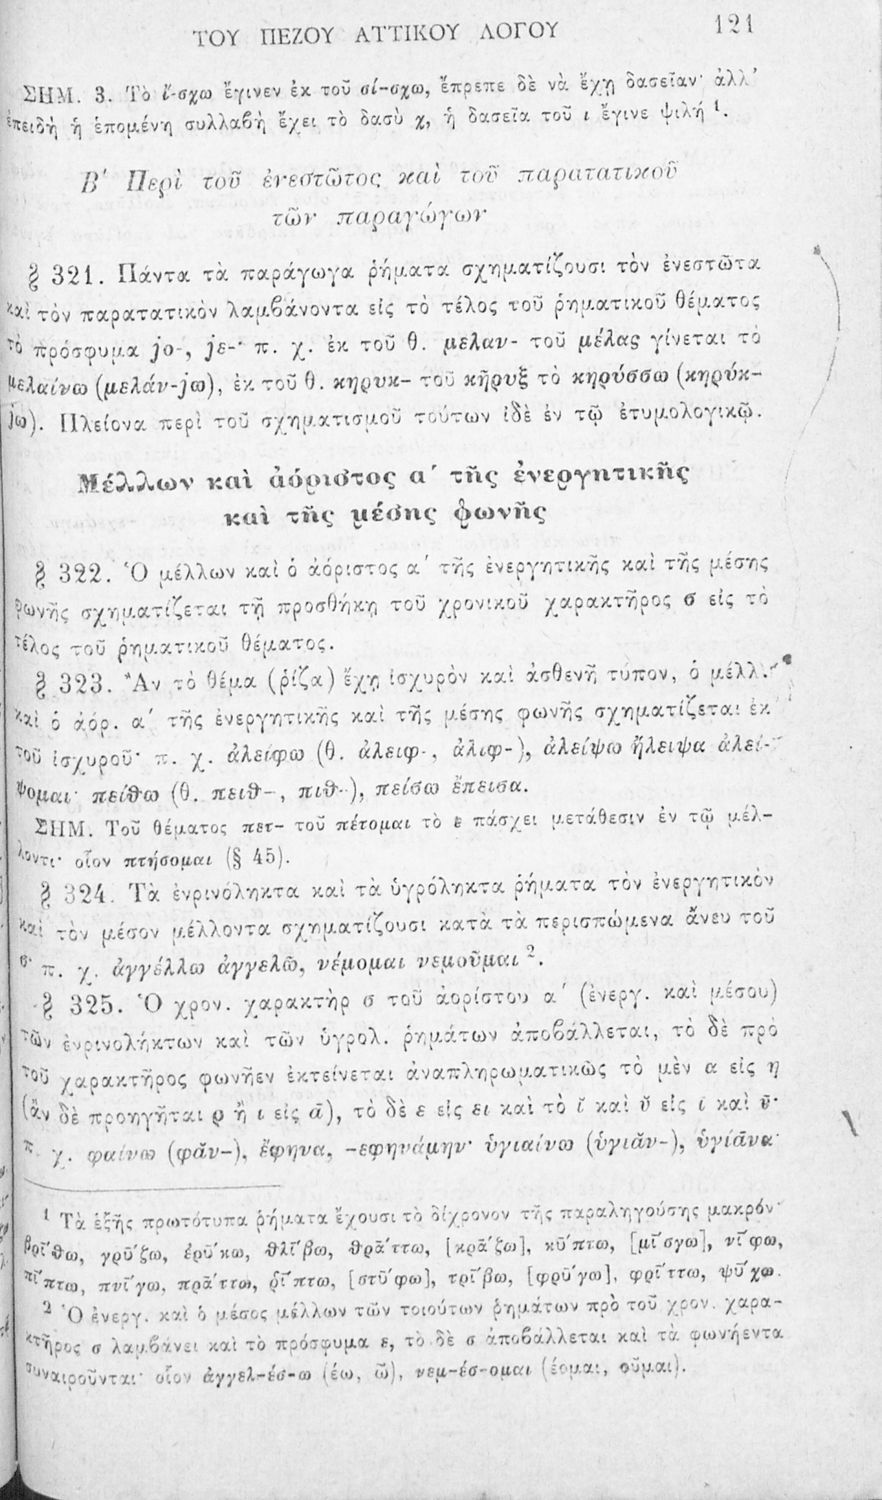 ΤΟΥ ΠΕΖΟΥ ΑΤΤΙΚΟΥ ΛΟΓΟΥ 121
ΣΗΜ. 3. Τὸ ἴ-σχω ἔγινεν ἐκ τοῦ σί-σχω, ἔπρεπε δὲ νὰ ἔχῃ δασεῖαν· ἀλλ'
ἐπειδὴ ἡ ἑπομένη συλλαβὴ ἔχει τὸ δασὺ χ, ἡ δασεῖα τοῦ ι ἔγινε ψιλή ¹.
Β' Περὶ τοῦ ἐνεστῶτος καὶ τοῦ παρατατικοῦ
τῶν παραγώγων
§ 321. Πάντα τὰ παράγωγα ῥήματα σχηματίζουσι τὸν ἐνεστῶτα
καὶ τὸν παρατατικὸν λαμβάνοντα εἰς τὸ τέλος τοῦ ῥηματικοῦ θέματος
τὸ πρόσφυμα jo-, je-· π. χ. ἐκ τοῦ θ. μελαν- τοῦ μέλας γίνεται τὸ
μελαίνω (μελάν-jω), ἐκ τοῦ θ. κηρυκ- τοῦ κῆρυξ τὸ κηρύσσω (κηρύκ-
jω). Πλείονα περὶ τοῦ σχηματισμοῦ τούτων ἰδὲ ἐν τῷ ἐτυμολογικῷ.
Μέλλων καὶ ἀόριστος α' τῆς ἐνεργητικῆς
καὶ τῆς μέσης φωνῆς
§ 322. Ὁ μέλλων καὶ ὁ ἀόριστος α' τῆς ἐνεργητικῆς καὶ τῆς μέσης
φωνῆς σχηματίζεται τῇ προσθήκῃ τοῦ χρονικοῦ χαρακτῆρος σ εἰς τὸ
τέλος τοῦ ῥηματικοῦ θέματος.
§ 323. Ἂν τὸ θέμα (ῥίζα) ἔχῃ ἰσχυρὸν καὶ ἀσθενῆ τύπον, ὁ μέλλ.
καὶ ὁ ἀόρ. α' τῆς ἐνεργητικῆς καὶ τῆς μέσης φωνῆς σχηματίζεται ἐκ
τοῦ ἰσχυροῦ· π. χ. ἀλείφω (θ. ἀλειφ-, ἀλιφ-), ἀλείψω ἤλειψα ἀλεί-
ψομαι· πείθω (θ. πειθ-, πιθ-), πείσω ἔπεισα.
ΣΗΜ. Τοῦ θέματος πετ- τοῦ πέτομαι τὸ ε πάσχει μετάθεσιν ἐν τῷ μέλ-
λοντι· οἷον πτήσομαι (§ 45).
§ 324. Τὰ ἐνρινόληκτα καὶ τὰ ὑγρόληκτα ῥήματα τὸν ἐνεργητικὸν
καὶ τὸν μέσον μέλλοντα σχηματίζουσι κατὰ τὰ περισπώμενα ἄνευ τοῦ
σ· π. χ. ἀγγέλλω ἀγγελῶ, νέμομαι νεμοῦμαι ².
§ 325. Ὁ χρον. χαρακτὴρ σ τοῦ ἀορίστου α' (ἐνεργ. καὶ μέσου)
τῶν ἐνρινολήκτων καὶ τῶν ὑγρολ. ῥημάτων ἀποβάλλεται, τὸ δὲ πρὸ
τοῦ χαρακτῆρος φωνῆεν ἐκτείνεται ἀναπληρωματικῶς τὸ μὲν α εἰς η
(ἂν δὲ προηγῆται ρ ἢ ι εἰς ᾱ), τὸ δὲ ε εἰς ει καὶ τὸ ῐ καὶ ῠ εἰς ῑ καὶ ῡ·
π. χ. φαίνω (φᾰν-), ἔφηνα, -εφηνάμην· ὑγιαίνω (ὑγιᾰν-), ὑγίᾱνα·
¹ Τὰ ἑξῆς πρωτότυπα ῥήματα ἔχουσι τὸ δίχρονον τῆς παραληγούσης μακρόν·
βρῑ́θω, γρῡ́ζω, ἐρῡ́κω, θλῑ́βω, θρᾱ́ττω, [κρᾱ́ζω], κῡ́πτω, [μῑ́σγω], νῑ́φω,
πῑ́πτω, πνῑ́γω, πρᾱ́ττω, ῥῑ́πτω, [στῡ́φω], τρῑ́βω, [φρῡ́γω], φρῑ́ττω, ψῡ́χω.
² Ὁ ἐνεργ. καὶ ὁ μέσος μέλλων τῶν τοιούτων ῥημάτων πρὸ τοῦ χρον. χαρα-
κτῆρος σ λαμβάνει καὶ τὸ πρόσφυμα ε, τὸ δὲ σ ἀποβάλλεται καὶ τὰ φωνήεντα
συναιροῦνται· οἷον ἀγγελ-έσ-ω (έω, ῶ), νεμ-έσ-ομαι (έομαι, οῦμαι).